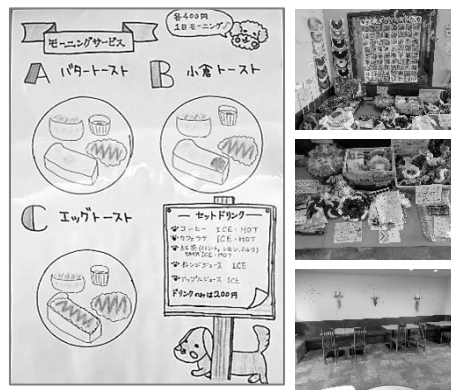 各400円
1日モーニング♪
モーニングサービス
A バタートースト
B 小倉トースト
C エッグトースト
セットドリンク
コーヒー ICE・HOT
カフェラテ ICE・HOT
紅茶(ストレート、レモン、ミルク)
ICE・HOT
オレンジジュース ICE
アップルジュース ICE
ドリンクのみは200円